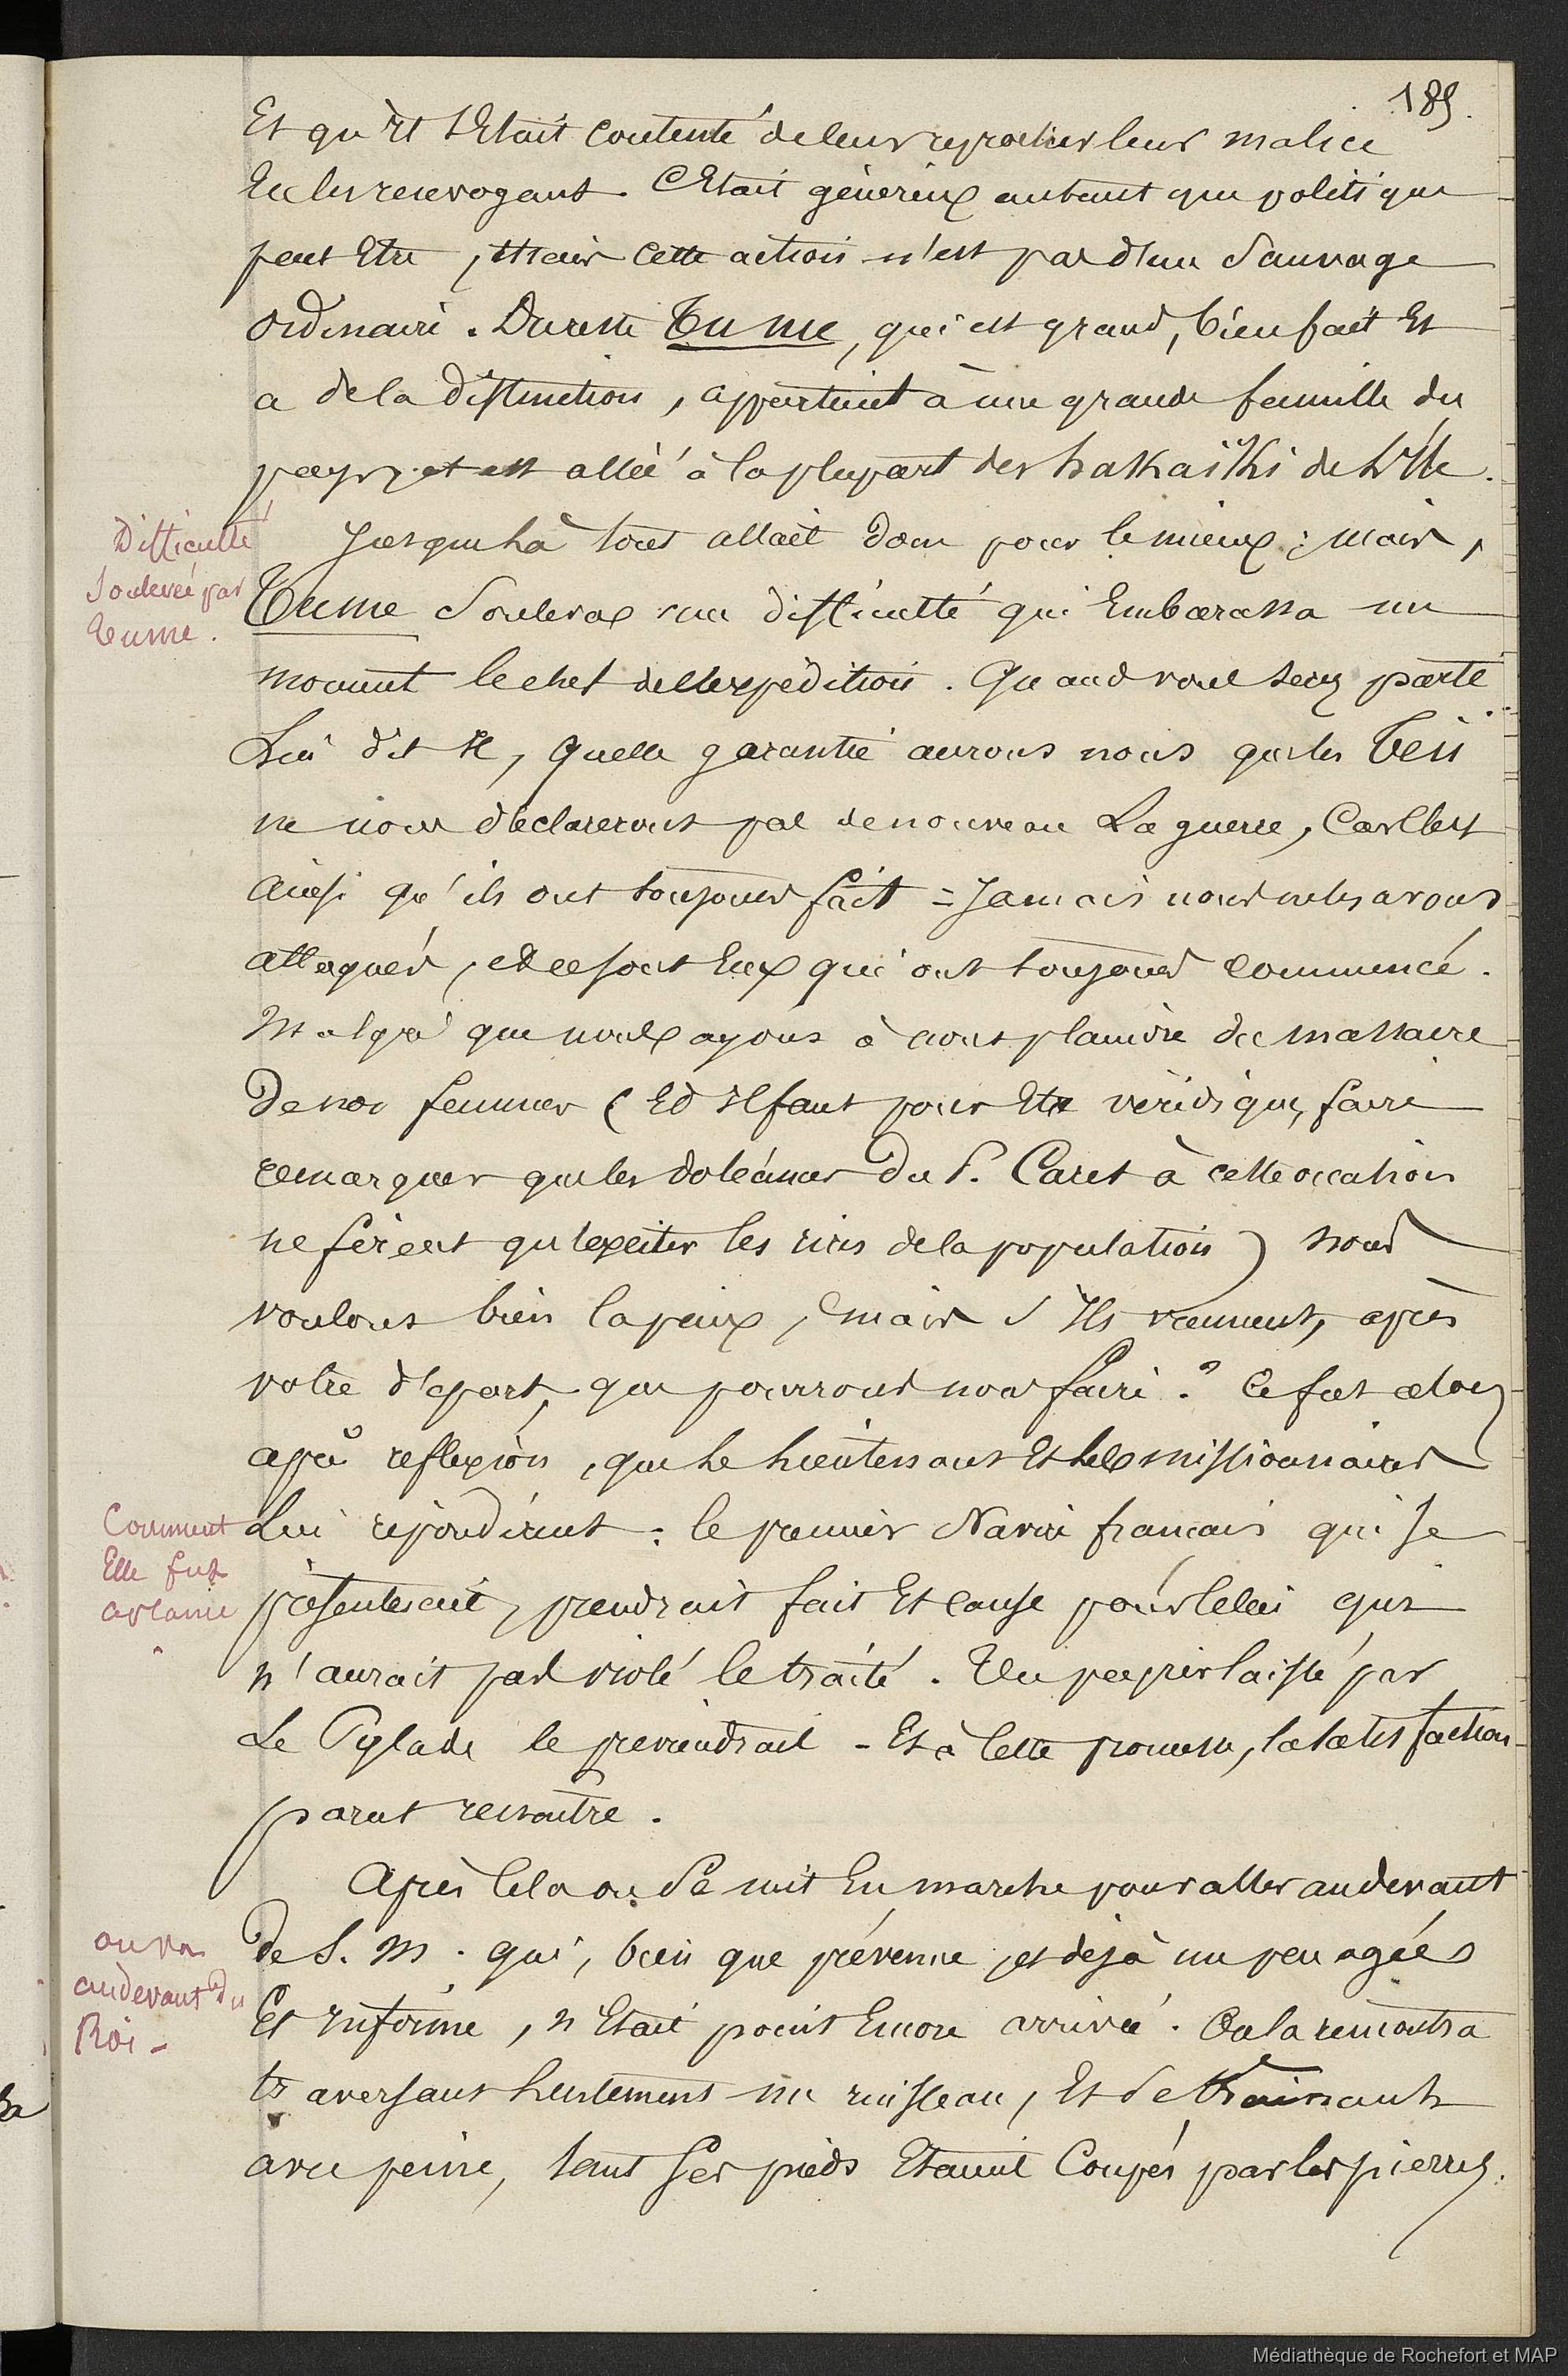 189.
Et qu'il s'était contenté de leur reprocher leur malice
En les renvoyant. C'était généreux autant que politique
peut Etre, mais cette action n'est pas d'un Sauvage
ordinaire. Du reste Tume, qui est grand, bien fait Et
a de la distinction, appartient à une grande famille du
pays, et est allié à la plupart des hakaïki de l'Ile.
Difficulté
Soulevée par
Tume.
Jusque là tout allait donc pour le mieux ; mais,
Tume Souleva une difficulté qui Embarassa un
moment le chef de l'expédition. Quand vous serez parti
Lui dit il, quelle garantie aurons nous que les Teii
ne nous déclareront pas de nouveau La guerre, Car c'est
ainsi qu'ils ont toujours fait = Jamais nous ne les avons
attaqués, et ce sont Eux qui ont toujours commencé.
Malgré que nous ayons à nous plaindre du massacre
De nos femmes (Et il faut pour Etre véridique, faire
remarquer que les doléances Du P. Caret à cette occasion
ne firent qu'exciter les rires de la population) nous
voulons bien la paix, mais s'Ils viennent, après
votre départ, que pourrons nous faire ? Ce fut alors,
après reflexion, que le lieutenant Et les missionnaires
Comment
Elle fut
aplanie
Lui répondirent : le premier Navire français qui se
présenterait, prendrait fait Et cause pour Celui qui
n'aurait pas violé le traité. Un papier laissé par
Le Pylade le previendrait - Et à Cette promesse, la satisfaction
parut renaitre.
Après Cela on Se mit En marche pour aller au devant
on va
au devant du
Roi -
De S. M. qui, bien que prévenue et déjà un peu agée
Et infirme, n'Etait point Encore arrivée. On la rencontra
traversant lentement un ruisseau, Et Se trainant
avec peine, tant ses pieds Etaient Coupés par les pierres.
Médiathèque de Rochefort et MAP